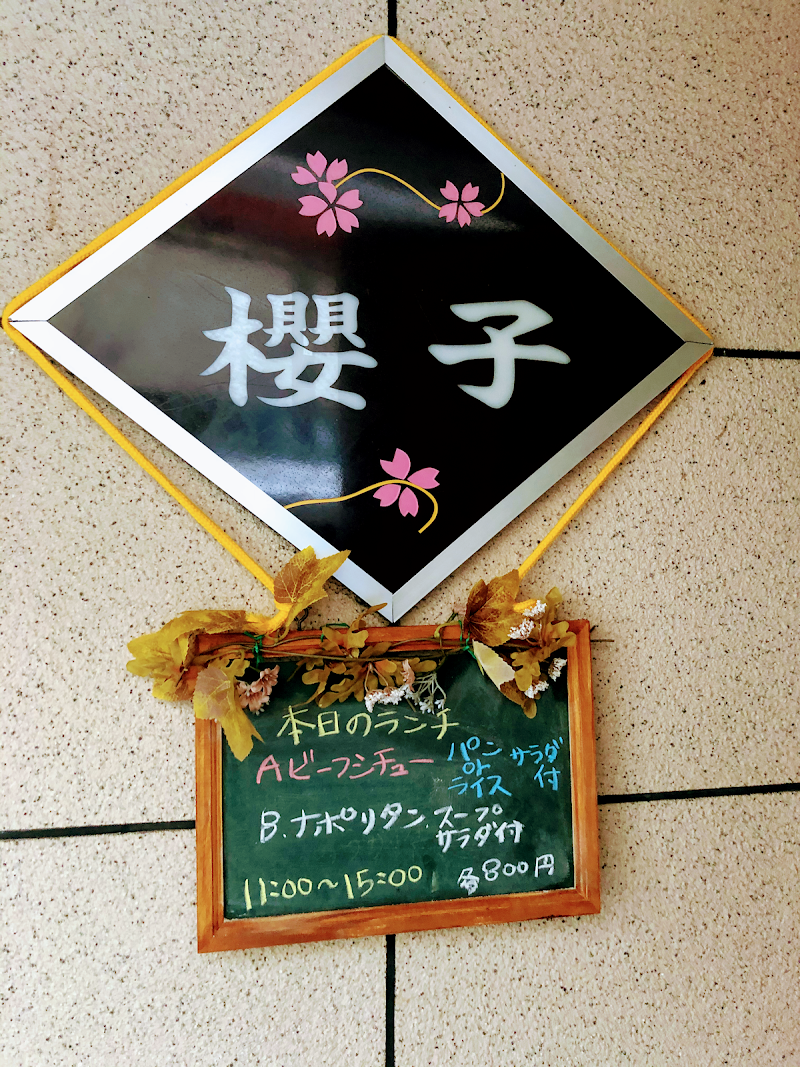 櫻子
本日のランチ
Aビーフシチュー パン or ライス サラダ付
B.ナポリタン.スープ サラダ付
11:00〜15:00 各800円